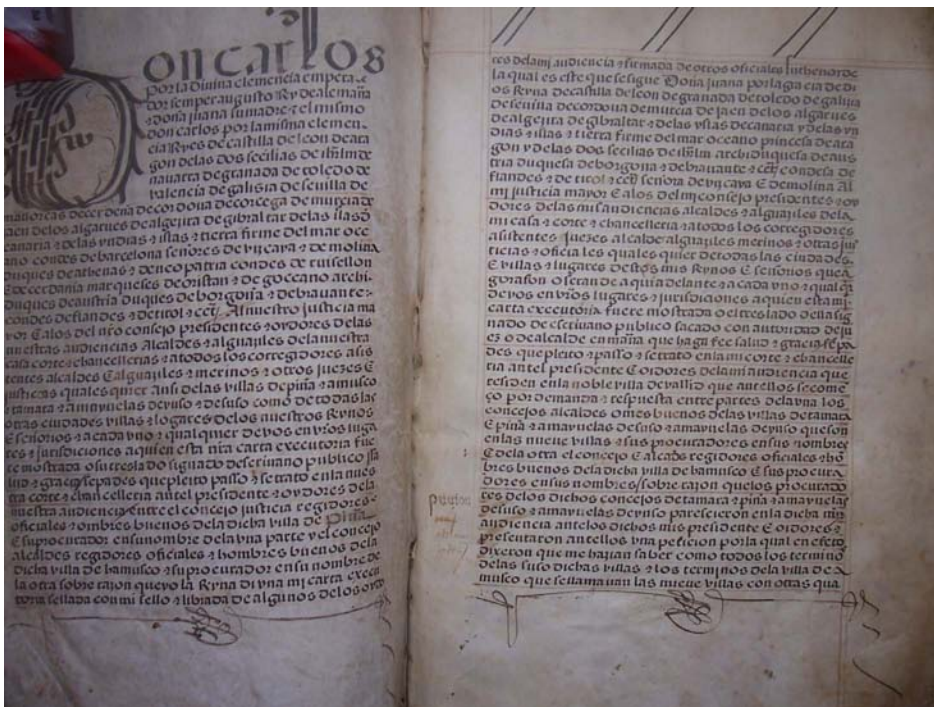 Don carlos
por la divina clemencia empera
dor semper augusto Rey de alemaña
doña juana su madre y el mismo
don carlos por la misma clemen
cia Reyes de castilla de leon de ara
gon de las dos secilias de iherusalem de
navarra de granada de toledo de
valencia de galisia de sevilla de
mallorcas de cerdeña de cordova de corcega de murcia de
jaen delos algarves de algezira de gibraltar delas islas de
canaria e delas yndias e islas e tierra firme del mar oce
ano condes de barcelona señores de vizcaya e de molina
duques de athenas e de neopatria condes de ruisellon
E de cerdania marqueses de oristan e de goceano archi
duques de austria duques de borgoña e de bravante
condes de flandes e de tirol e cet. Al nuestro justicia ma
yor E alos del nro consejo presidentes e oydores delas
nuestras audiencias Alcaldes e alguaziles dela nuestra
casa corte e chancellerias e a todos los corregidores asis
tentes alcaldes E alguaziles e merinos e otros juezes E
justicias quales quier Ansi delas villas de piña e amusco
e tamara e amayuelas de yuso e de suso como de todas las
otras ciudades villas e logares delos nuestros Rynos
E señorios e a cada vno e qualquier de vos en vros luga
res e jurisdiciones a quien esta nra carta executoria fue
re mostrada o su treslado signado de escrivano publico sa
lud e gracia sepades que pleito passo e se trato en la nues
tra corte e chancelleria antel presidente e oydores dela
nuestra audiencia entre el concejo justicia regidores
oficiales e ombres buenos dela dicha villa de piña
E su procurador en su nombre dela vna parte y el concejo
alcaldes regidores oficiales e hombres buenos dela
dicha villa de hamusco e su procurador en su nombre de
la otra sobre razon que yo la Ryna di vna mi carta execu
toria sellada con mi sello e librada de algunos delos oydo
res dela mi audiencia e firmada de otros oficiales su thenor de
la qual es este que se sigue Doña juana por la gracia de di
os Ryna de castilla de leon de granada de toledo de galizia
de sevilla de cordova de murcia de jaen delos algarves
de algezira de gibraltar e delas yslas de canaria y delas yn
dias e islas e tierra firme del mar oceano princesa de ara
gon y delas dos secilias de iherusalem archiduquesa de aus
tria duquesa de borgoña e de bravante e cet condesa de
flandes e de tirol e cet señora de vizcaya E de molina Al
mi justicia mayor E alos del mi consejo presidentes e oy
dores delas mis audiencias alcaldes e alguaziles dela
mi casa e corte e chancelleria e a todos los corregidores
asistentes juezes alcaldes alguaziles merinos e otras jus
ticias e oficiales quales quier de todas las ciudades
E villas e lugares destos mis Rynos E señorios que a
gora son o seran de aqui adelante e a cada vno e qual quier
de vos en vros lugares e jurisdiciones a quien esta mi
carta executoria fuere mostrada o el treslado della sig
nado de escrivano publico sacado con autoridad de ju
ez o de alcalde en manera que haga fee salud e gracia sepa
des que pleito e passo e se trato en la mi corte e chancelle
ria antel presidente E oidores dela mi audiencia que
residen en la noble villa de vallid que antellos se come
ço por demanda e respuesta entre partes dela vna los
concejos alcaldes omes buenos delas villas de tamara
E piña e amayuelas de suso e amayuelas de yuso que son
en las nueve villas e sus procuradores en sus nombres
E dela otra el concejo E alcaldes regidores oficiales e ho
bres buenos dela dicha villa de hamusco E sus procura
dores en sus nombres sobre razon quelos procurado
res delos dichos concejos de tamara e piña e amayuelas
de suso e amayuelas de yuso parescieron en la dicha mi
audiencia antelos dichos mis presidente E oidores e
presentaron antellos vna peticion por la qual en efeto
dixeron que me hazian saber como todos los termino
delas suso dichas villas e los terminos dela villa de a
musco que se llamavan las nueve villas con otras qua